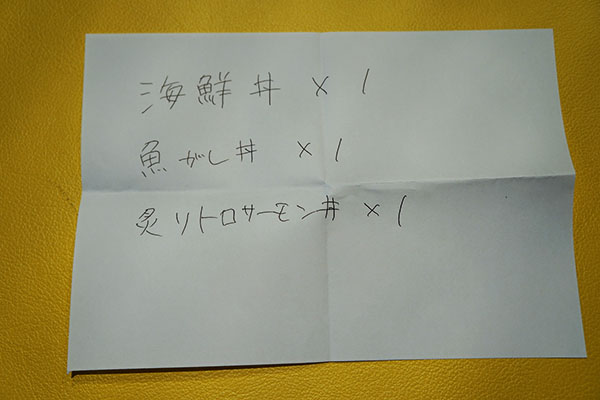 海鮮丼 × 1
魚がし丼 × 1
炙リトロサーモン丼 × 1